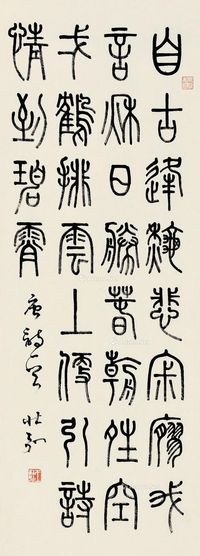 自古逢秋悲寂寥我
言秋日勝春朝晴空
弌鶴排雲上便引詩
情到碧霄
唐詩